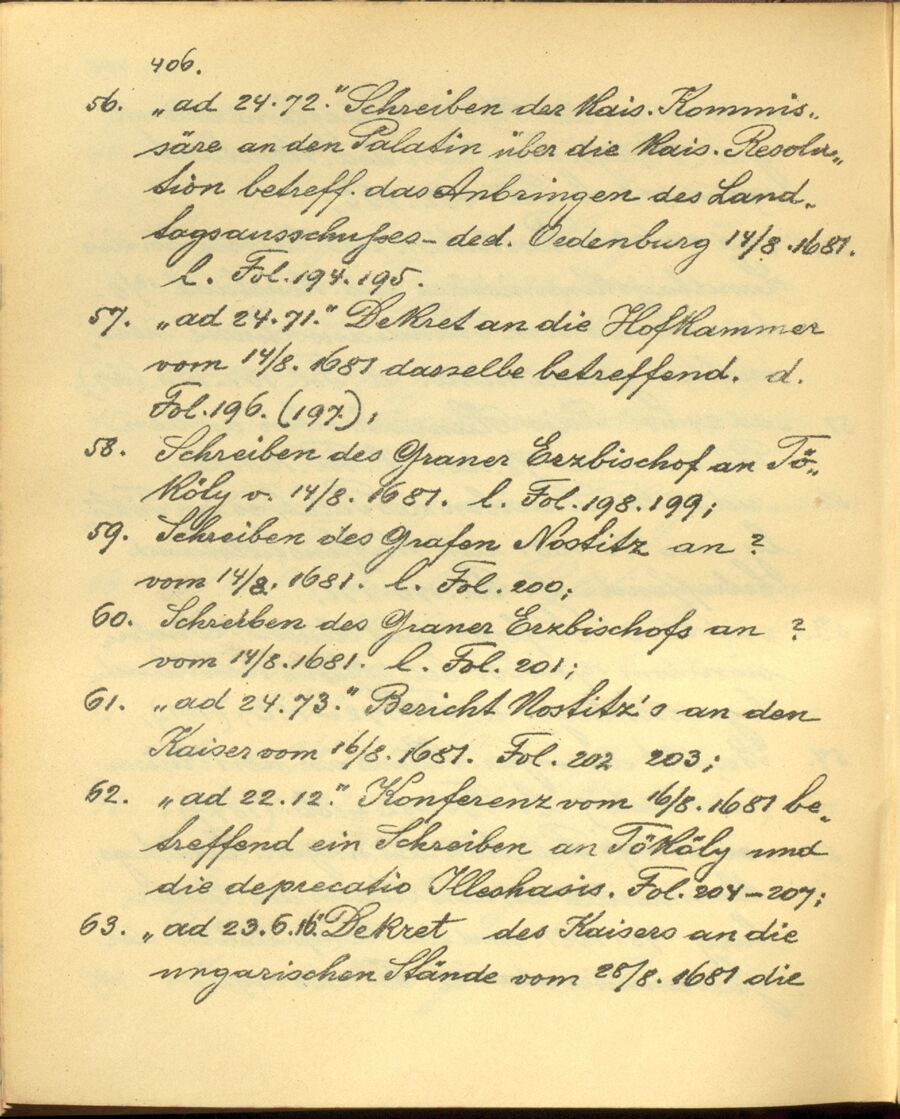 406.
56. „ad 24.72." Schreiben der Kais. Kommis„
säre an den Palatin über die Kais. Resolu„
tion betreff. das Anbringen des Land„
tagsausschußes – ded. Oedenburg 14/8.1681.
l. Fol. 194.195.
57. „ad 24.71." Dekret an die Hofkammer
vom 14/8. 1681 dasselbe betreffend. d.
Fol. 196. (197.);
58. Schreiben des Graner Erzbischof an Tö„
köly v. 14/8. 1681. l. Fol. 198.199;
59. Schreiben des Grafen Nostitz an ?
vom 14/8. 1681. l. Fol. 200;
60. Schreiben des Graner Erzbischofs an ?
vom 14/8.1681. l. Fol. 201;
61. „ad 24.73." Bericht Nostitz's an den
Kaiser vom 16/8. 1681. Fol. 202 203;
62. „ad 22.12." Konferenz vom 16/8. 1681 be„
treffend ein Schreiben an Tököly und
die deprecatio Illeshasis. Fol. 204–207;
63. „ad 23.6.16." Dekret des Kaisers an die
ungarischen Stände vom 28/8. 1681 die